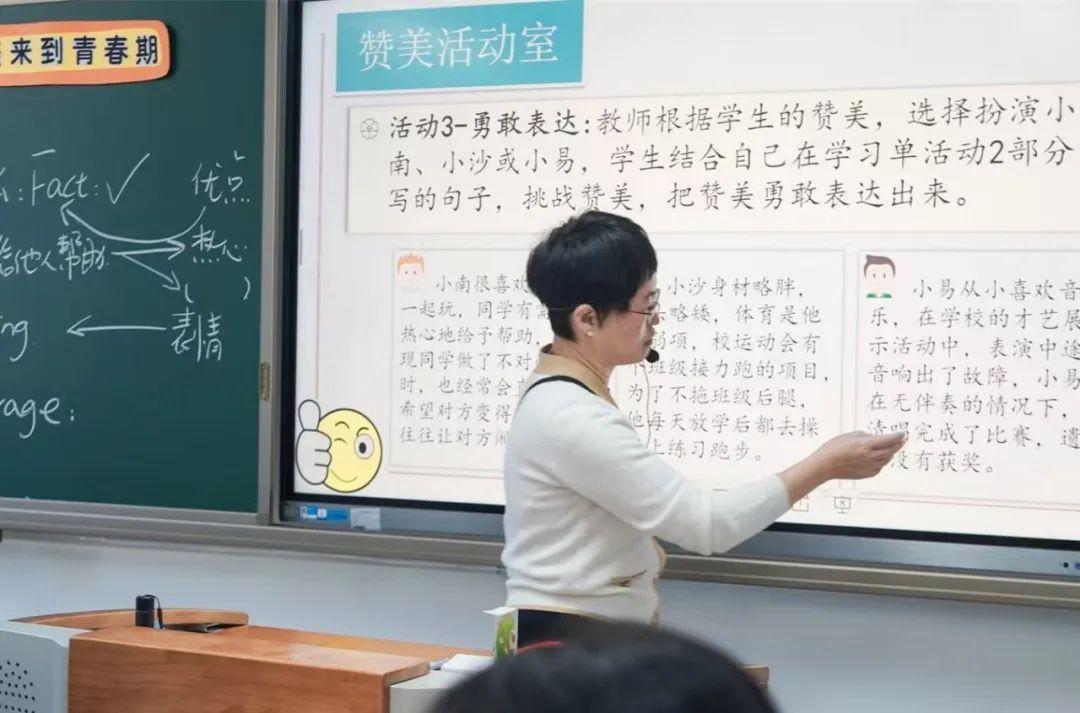 来到青春期
Fact:✓
优点
给他人帮助
热心
( )
ing.
表情
rage:
赞美活动室
活动3-勇敢表达:教师根据学生的赞美，选择扮演小
南、小沙或小易，学生结合自己在学习单活动2部分
写的句子，挑战赞美，把赞美勇敢表达出来。
小南很喜欢
一起玩，同学有
热心地给予帮助，
现同学做了不对
时，也经常会
希望对方变得
往往让对方
小沙身材略胖，
略矮，体育是他
弱项，校运动会有
班级接力跑的项目，
为了不拖班级后腿，
他每天放学后都去操
上练习跑步。
小易从小喜欢音
乐，在学校的才艺展
示活动中，表演中途
音响出了故障，小易
在无伴奏的情况下，
清唱完成了比赛，遗
没有获奖。